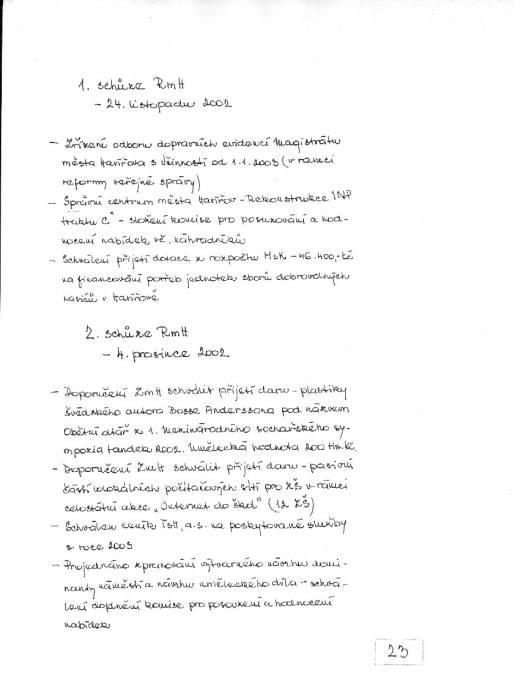 1. schůze RmH
- 24. listopadu 2002
- Zřízení odboru dopravních evidencí Magistrátu
města Havířova s účinností od 1.1.2003 (v rámci
reformy veřejné správy)
- Správní centrum města Havířov - Rekonstrukce INP
traktu C" - složení komise pro posuzování a hod-
nocení nabídek, vč. náhradníků
- Schválení přijetí dotace z rozpočtu MsK - 46.400,- Kč
na financování potřeb jednotek sborů dobrovolných
hasičů v Havířově
2. schůze RmH
- 4. prosince 2002
- Doporučení ZmH schválit přijetí daru - plastiky
švédského autora Bosse Anderssona pod názvem
Obětní oltář z 1. Mezinárodního sochařského sy-
mpozia Landek 2002. Umělecká hodnota 200 tis. kč.
- Doporučení ZmH schválit přijetí daru - pasivní
části lokálních počítačových sítí pro ZŠ v rámci
celostátní akce "Internet do škol" (12 ZŠ)
- Schválen ceník TSH, a.s. na poskytované služby
v roce 2003
- Projednáno zpracování výtvarného návrhu domi-
nanty náměstí a návrhu uměleckého díla - schvá-
lení doplnění komise pro posouzení a hodnocení
nabídek
23